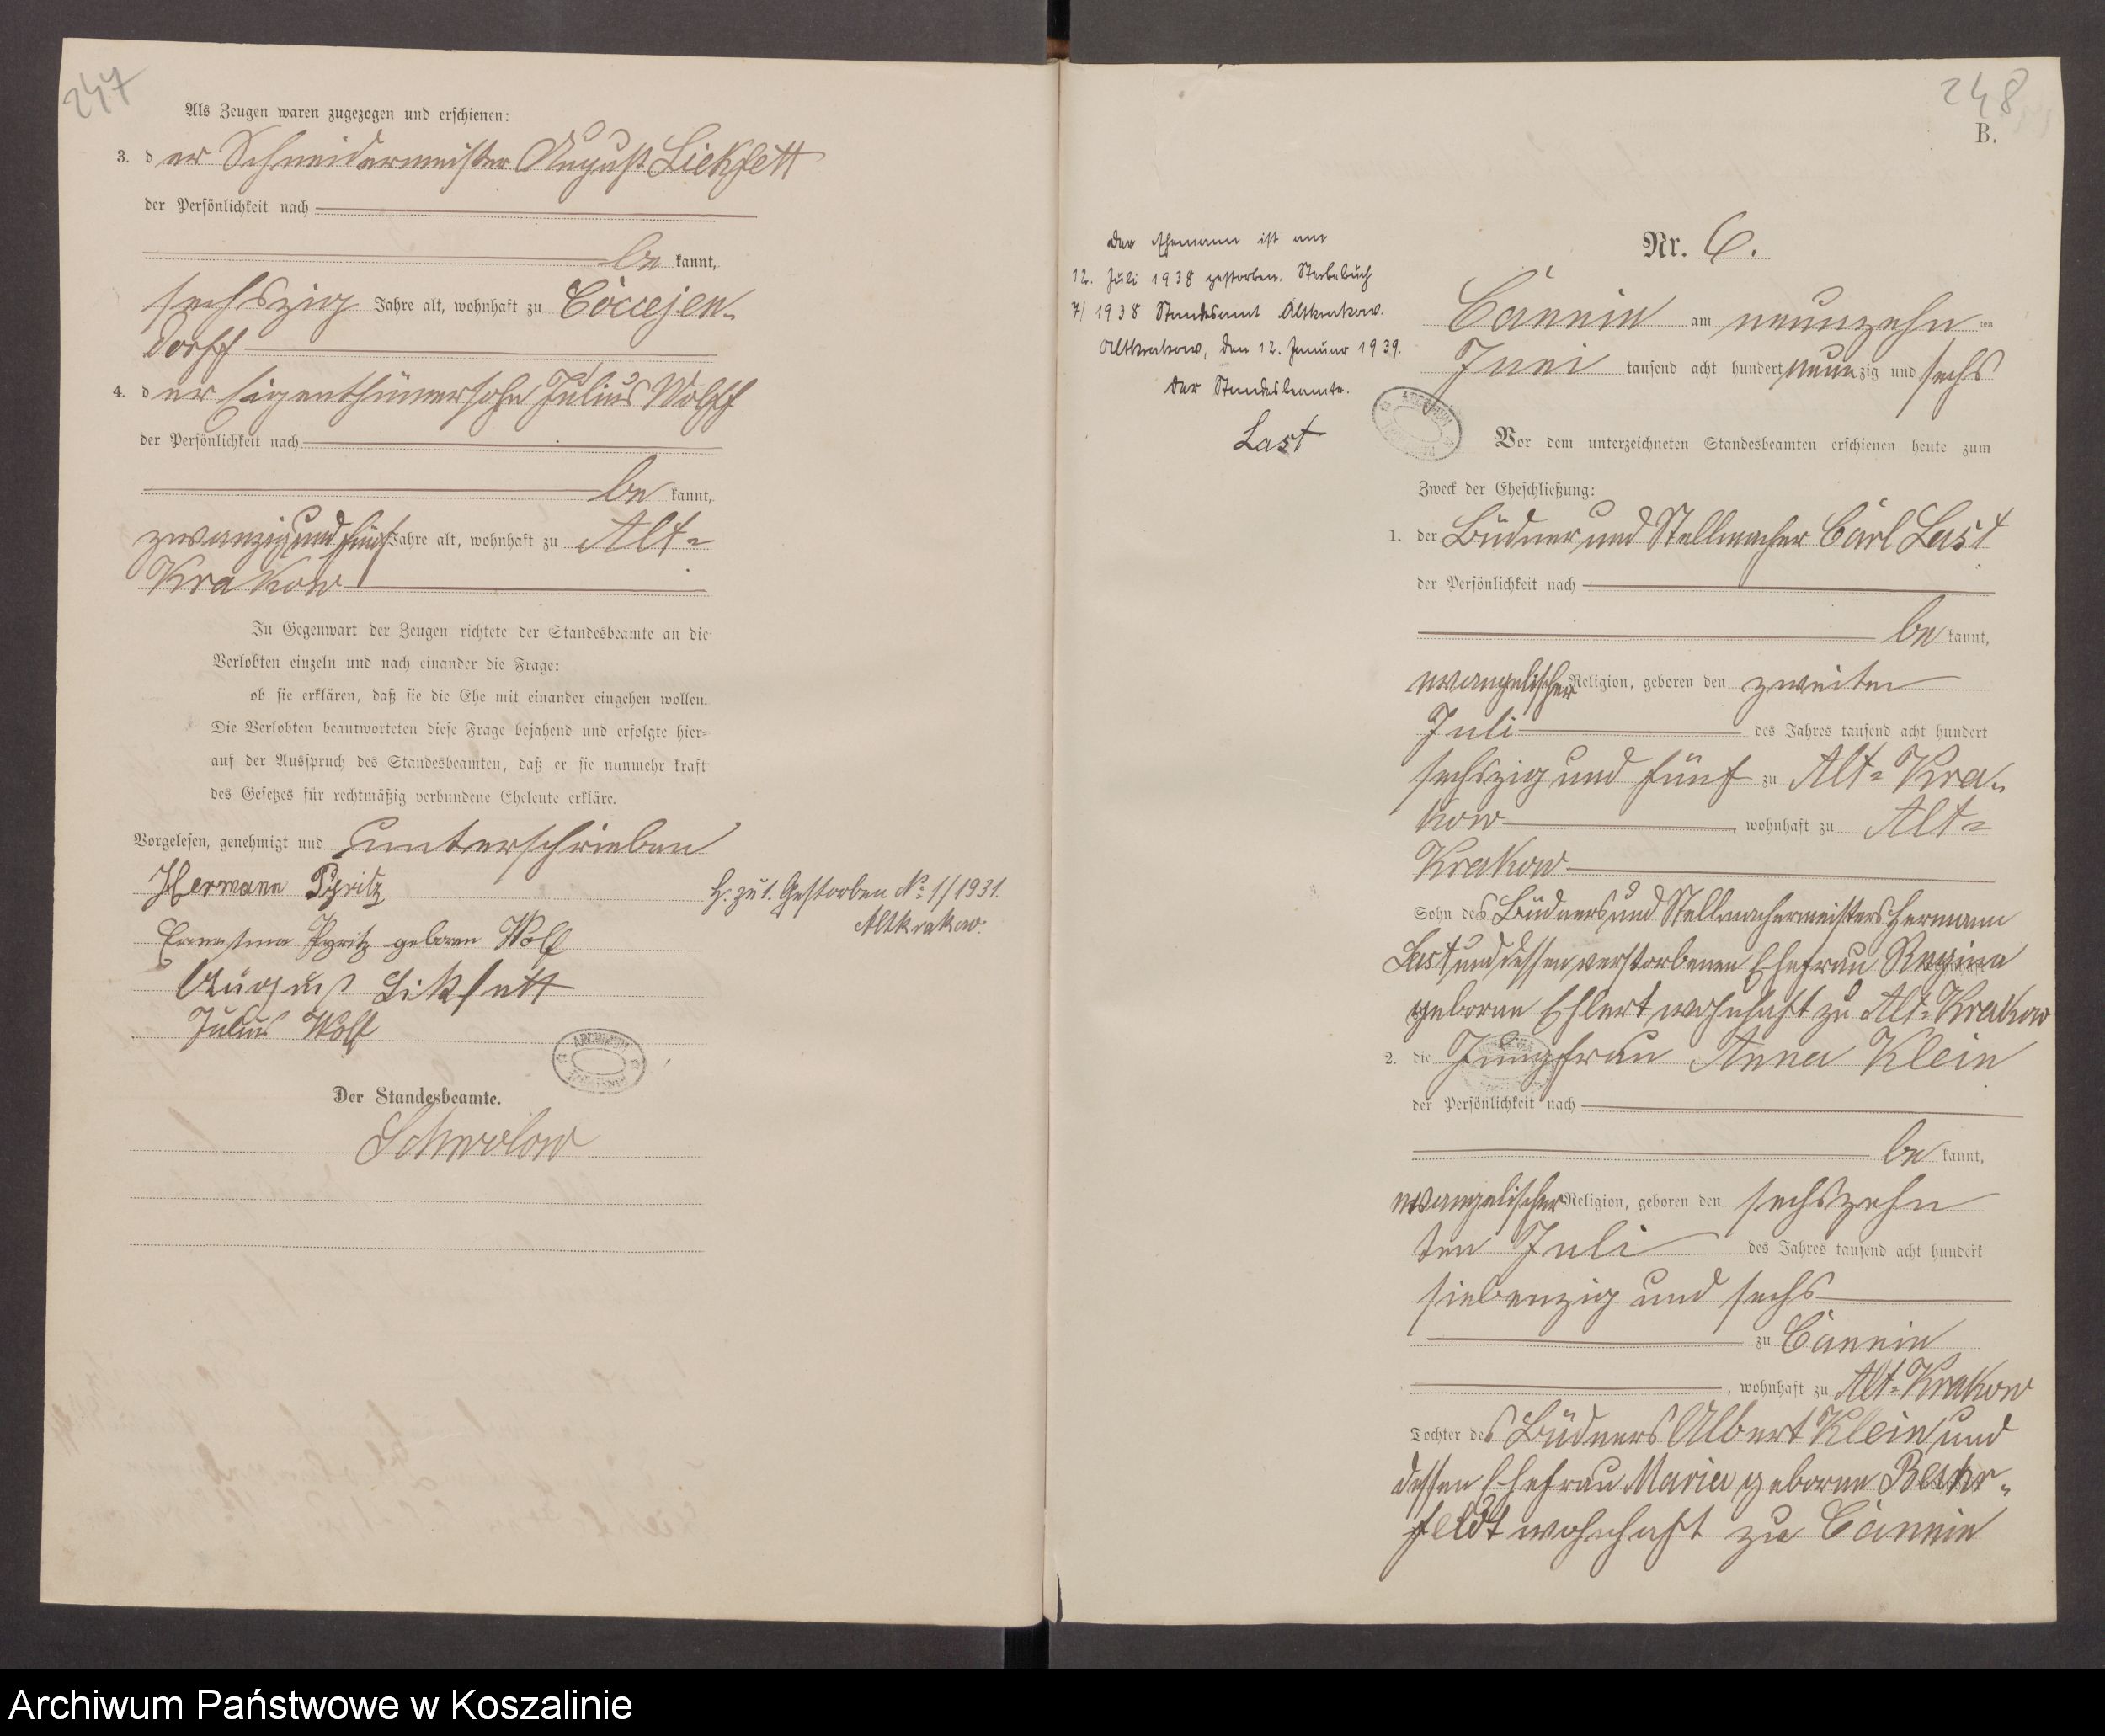 247
Als Zeugen waren zugezogen und erschienen:
3. der Schneidermeister August Liekfett
der Persönlichkeit nach
be kannt,
sechszig Jahre alt, wohnhaft zu Coccejen-
dorff
4. der Eigenthümersohn Julius Wolff
der Persönlichkeit nach
be kannt,
zwanzig und fünf Jahre alt, wohnhaft zu Alt-
Krakow
In Gegenwart der Zeugen richtete der Standesbeamte an die
Verlobten einzeln und nach einander die Frage:
ob sie erklären, daß sie die Ehe mit einander eingehen wollen.
Die Verlobten beantworteten diese Frage bejahend und erfolgte hier-
auf der Ausspruch des Standesbeamten, daß er sie nunmehr kraft
des Gesetzes für rechtmäßig verbundene Eheleute erkläre.
Vorgelesen, genehmigt und unterschrieben
Hermann Pyritz
Ernestine Pyritz geboren Wolf
August Likfett
Julius Wolf
H. zu 1. Gestorben No. 1/1931.
Altkrakow.
ARCHIWUM
Der Standesbeamte.
248
B.
Der Ehemann ist am
12. Juli 1938 gestorben. Sterbebuch
7/1938 Standesamt Altkrakow.
Altkrakow, den 12. Januar 1939.
Der Standesbeamte.
Last
Nr. 6.
Cannin am neunzehn ten
Juni tausend acht hundert neunzig und sechs
Vor dem unterzeichneten Standesbeamten erschienen heute zum
Zweck der Eheschließung:
1. der Büdner und Stellmacher Carl Last
der Persönlichkeit nach
be kannt,
evangelischer Religion, geboren den zweiten
Juli des Jahres tausend acht hundert
sechszig und fünf zu Alt-Kra-
kow, wohnhaft zu Alt-
Krakow
Sohn des Büdners und Stellmachermeisters Hermann
Last und dessen verstorbenen Ehefrau Regina
geborne Ehlert wohnhaft zu Alt-Krakow
2. die Jungfrau Anna Klein
der Persönlichkeit nach
be kannt,
evangelischer Religion, geboren den sechszehn
ten Juli des Jahres tausend acht hundert
siebenzig und sechs
zu Cannin
, wohnhaft zu Alt-Krakow
Tochter des Büdners Albert Klein und
dessen Ehefrau Marie geborne
wohnhaft zu Cannin
Archiwum Państwowe w Koszalinie